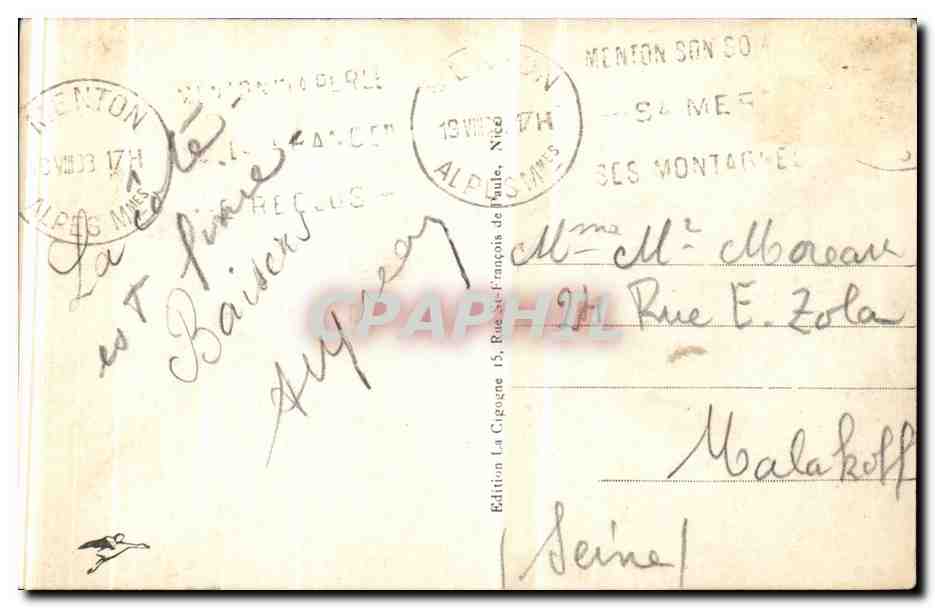 MENTON
VIII 33 17H
ALPES Mmes
MENTON LA PERLE
DE LA FRANCE
RECLUS
MENTON
19 VIII 33 17H
ALPES Mmes
MENTON SON SO
SA MER
SES MONTAGNES
La côte
est
Baisers
Mme Mr Moreau
24 Rue E. Zola
Malakoff
(Seine)
Edition La Cigogne 15, Rue St-François de Paule, Nice
CPAPHIL